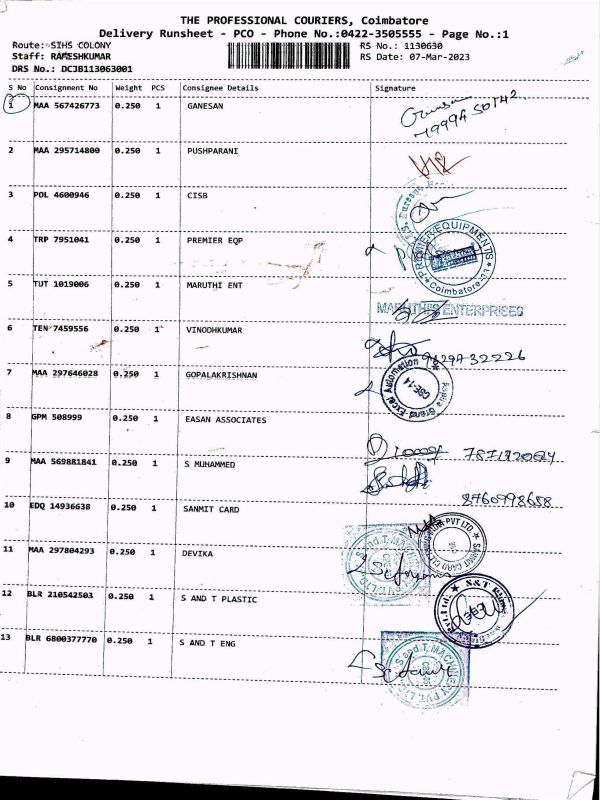 THE PROFESSIONAL COURIERS, Coimbatore
Delivery Runsheet - PCO - Phone No.:0422-3505555 - Page No.:1
Route: SIHS COLONY RS No.: 1130630
Staff: RAMESHKUMAR RS Date: 07-Mar-2023
DRS No.: DCJB113063001
S No Consignment No Weight PCS Consignee Details Signature
1 MAA 567426773 0.250 1 GANESAN
2 MAA 295714800 0.250 1 PUSHPARANI
3 POL 4600946 0.250 1 CISB
4 TRP 7951041 0.250 1 PREMIER EQP
PREMIER EQUIPMENTS
Coimbatore
5 TUT 1019006 0.250 1 MARUTHI ENT
MARUTHI'S ENTERPRISES
6 TEN 7459556 0.250 1 VINODHKUMAR
7 MAA 297646028 0.250 1 GOPALAKRISHNAN
CBE-14
8 GPM 508999 0.250 1 EASAN ASSOCIATES
9 MAA 569881841 0.250 1 S MUHAMMED
8760998658
10 EDQ 14936638 0.250 1 SANMIT CARD
11 MAA 297804293 0.250 1 DEVIKA
12 BLR 210542503 0.250 1 S AND T PLASTIC
S&T
13 BLR 6800377770 0.250 1 S AND T ENG
S and T. MACHINERY PVT. LTD